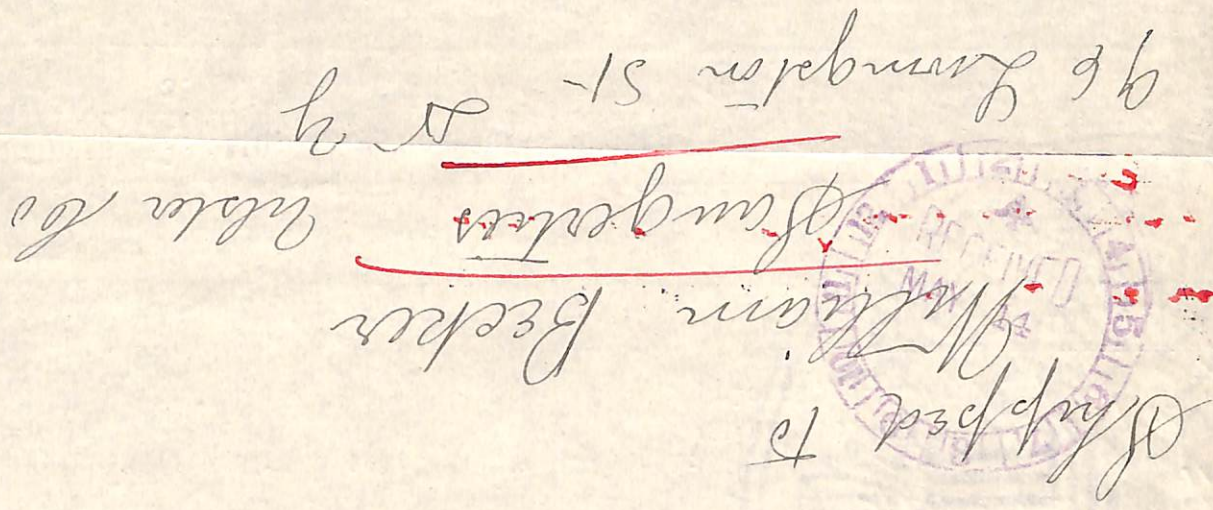 Shipped to
William Becker
Saugerties Ulster Co
N Y
96 Livingston St
RECEIVED
MAY